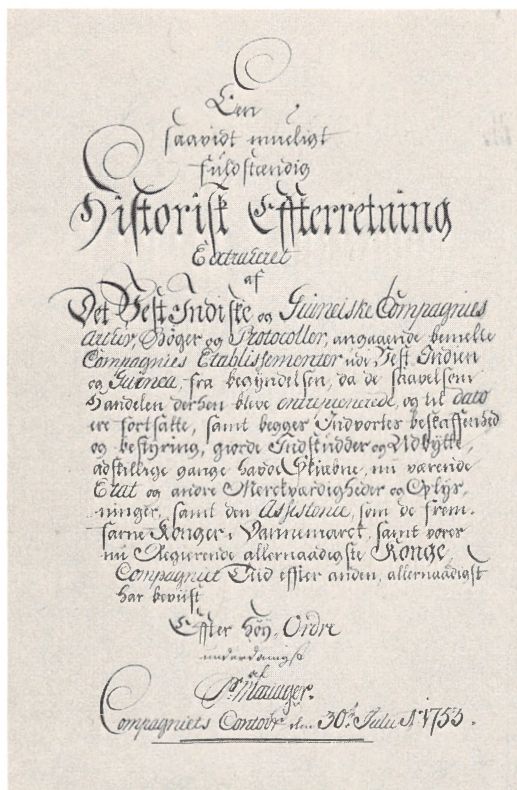 Een
saavidt mueligt
fuldstændig
Historisk Effterretning
Extraheret
af
Det Vest Indiske og Guineiske Compagnies
Acker, Bøger og Protocoller, angaaende bemelte
Compagnies Etablissementer udi Vest Indien
og Guinea, fra begyndelsen, da de saavelsom
Handelen derhen bleve entreprenerede, og til dato
ere fortsatte, samt begges Indvortes beskaffenhed
og bestyring, giorde Indskudder og Udbytte,
adskillige gange havde Skiæbne, nu værende
Etat og andre Merckværdigheder og Oplys,
ninger, samt den Assistence, som de frem,
farne Konger i Dannemarck, samt vores
nu Regierende allernaadigste Konge,
Compagniet Tiid effter anden, allernaadigst
har beviist
Effter høy, Ordre
underdanigst
af
Mariager.
Compagniets Contoir den 30te Julii Ao 1753.